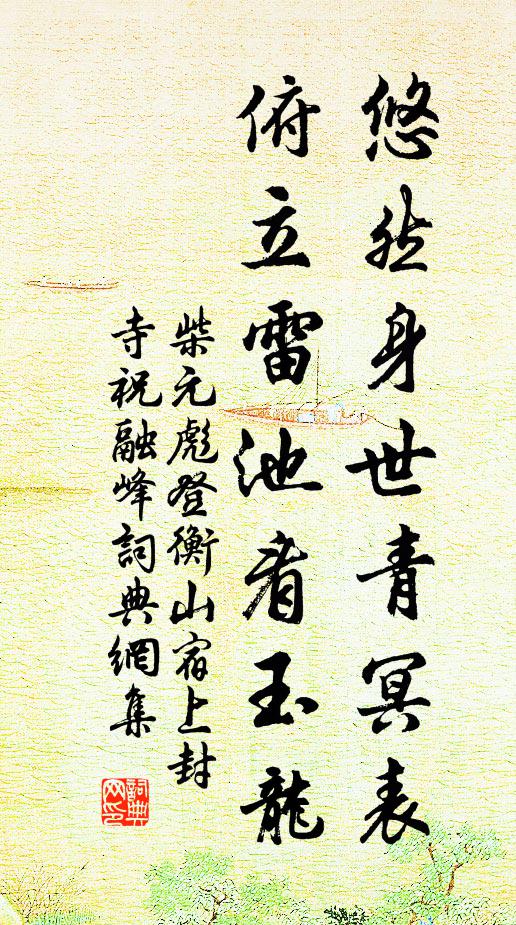 悠然身世青冥表
俯立雷池看玉龍
柴元彪登衡山宿上封
寺祝融峰詞典網集
詞典網印